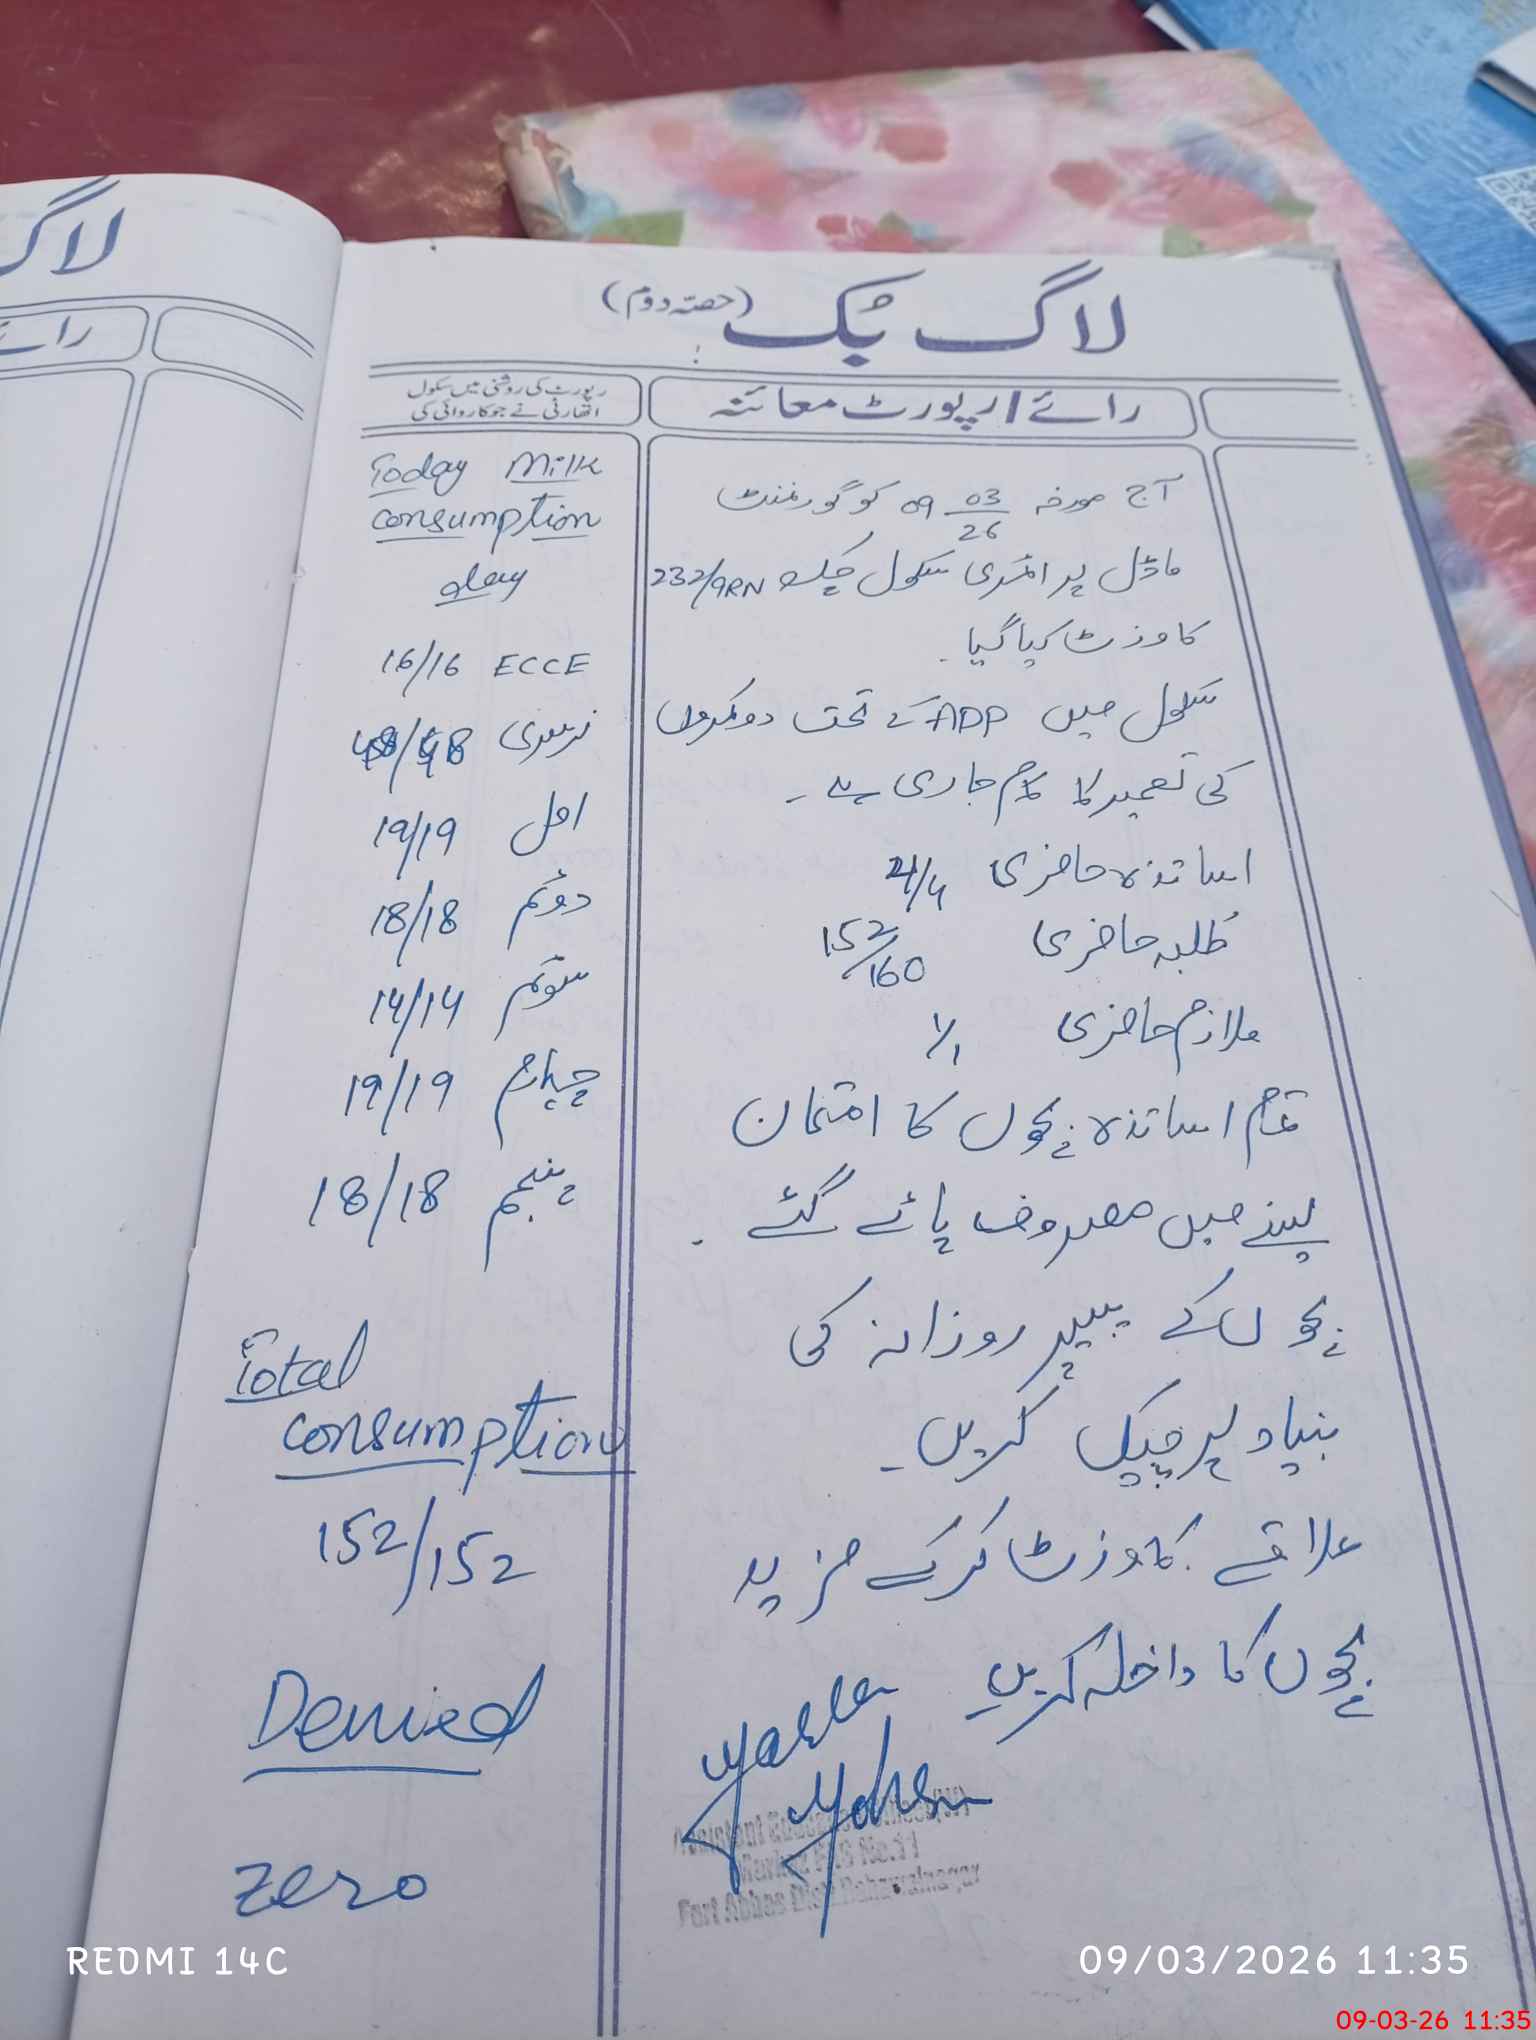 لاگ
رائے
لاگ بک (حصّہ دوم)
رائے / رپورٹ معائنہ
آج مورخہ 09 03/26 کو گورنمنٹ
ماڈل پرائمری سکول چک 232/9RN
کا وزٹ کیا گیا۔
سکول میں ADP کے تحت دو کمروں
کی تعمیر کا کام جاری ہے۔
اساتذہ حاضری 4/4
طلبہ حاضری 152/160
ملازم حاضری 1/1
تمام اساتذہ بچوں کا امتحان
لینے میں مصروف پائے گئے۔
بچوں کے پیپر روزانہ کی
بنیاد پر چیک کریں۔
علاقے کا وزٹ کرکے مزید
بچوں کا داخلہ کریں
Mohsin
Assistant Education Officer(W)
Markaz No.11
Fort Abbas Distt Bahawalnagar
رپورٹ کی روشنی میں سکول
اتھارٹی نے جو کاروائی کی
Today Milk
consumption
day
16/16 ECCE
48/48 نرسری
19/19 اول
18/18 دوئم
14/14 سوئم
19/19 چہارم
18/18 پنجم
Total
consumption
152/152
Denied
Zero
REDMI 14C
09/03/2026 11:35
09-03-26 11:35